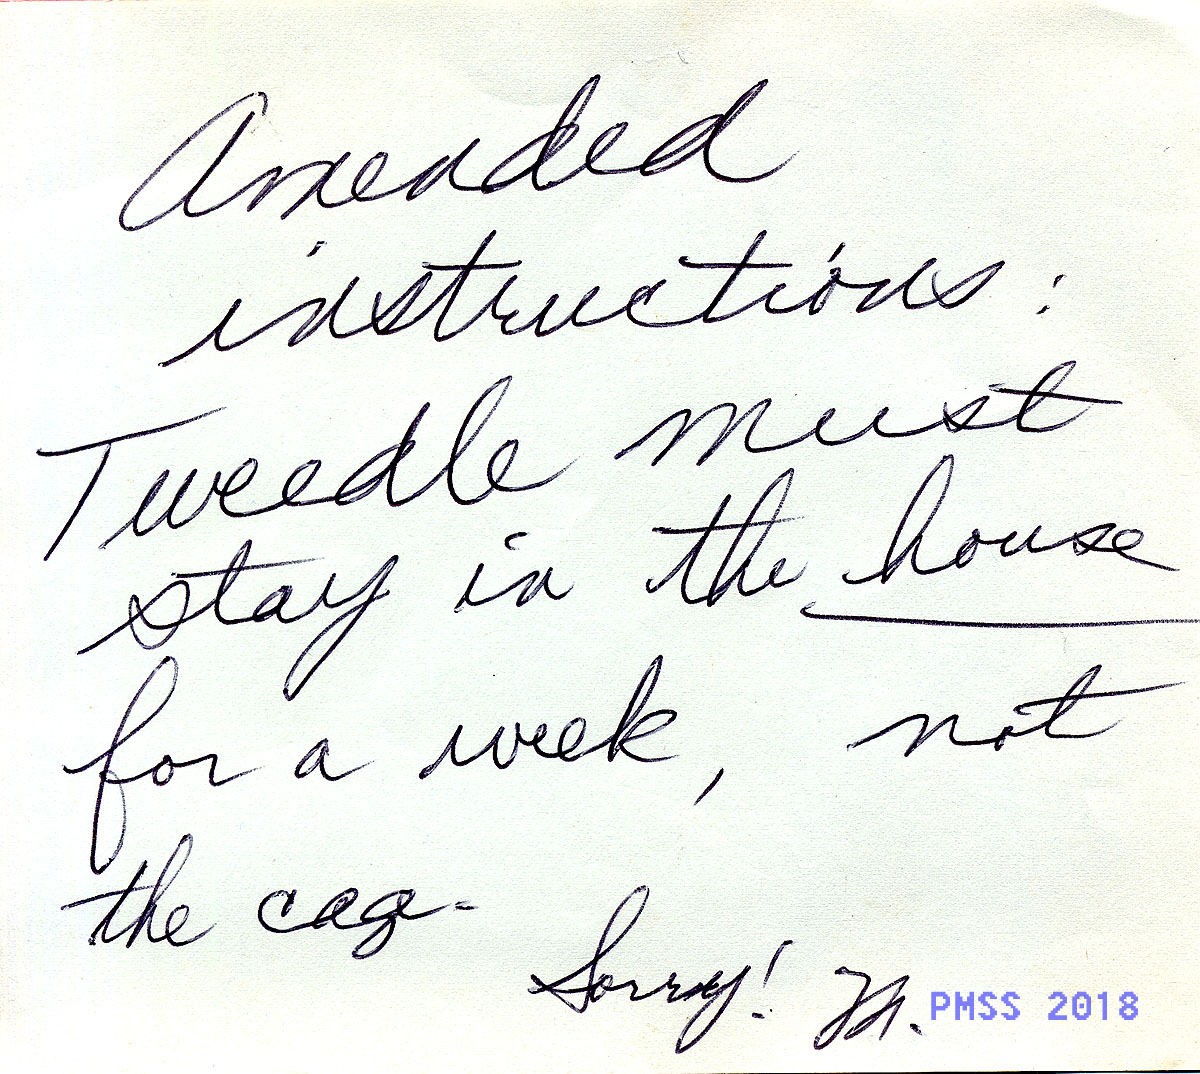 Amended
instructions:
Tweedle must
stay in the house
for a week, not
the cage.
Sorry! M.
PMSS 2018